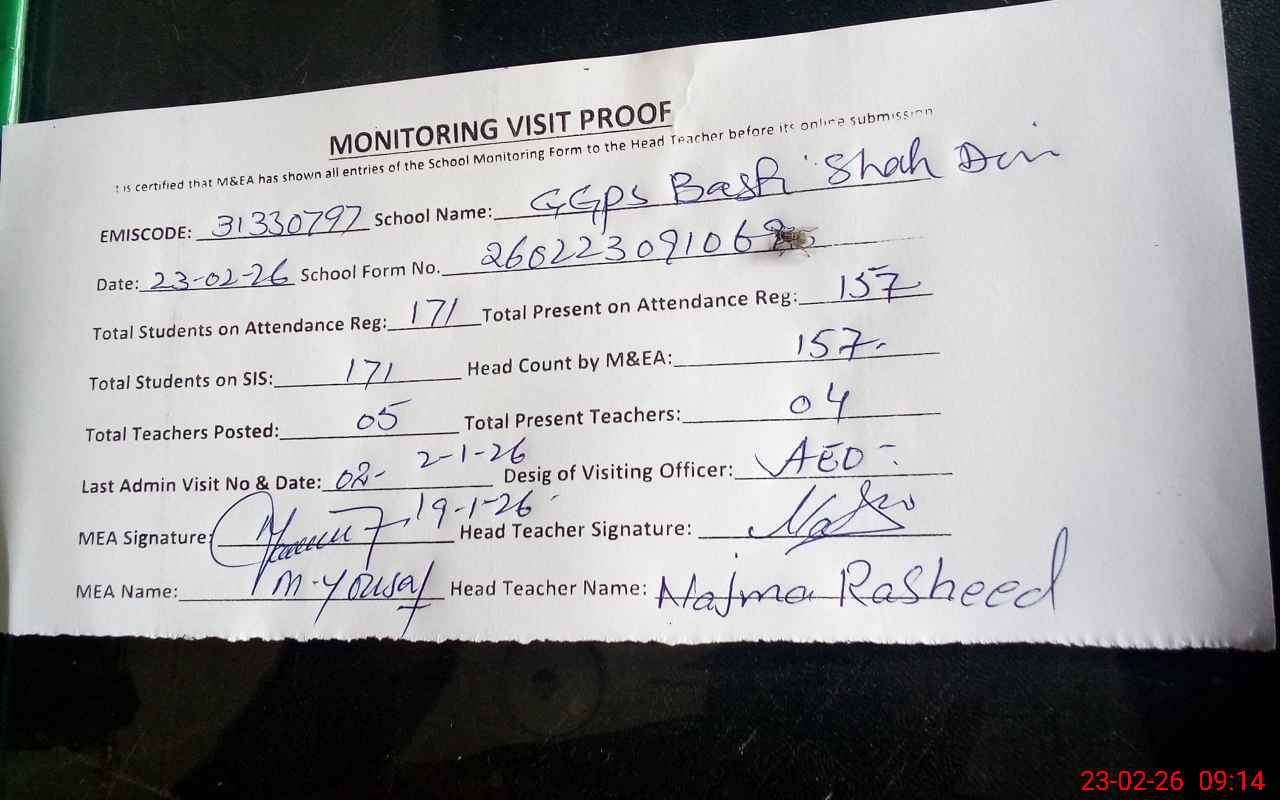 MONITORING VISIT PROOF
t is certified that M&EA has shown all entries of the School Monitoring Form to the Head Teacher before its online submission
EMISCODE: 31330797 School Name: GGPS Shah Din
Date: 23-02-26 School Form No. 26022309106
Total Students on Attendance Reg: 171 Total Present on Attendance Reg: 157
Total Students on SIS: 171 Head Count by M&EA: 157.
Total Teachers Posted: 05 Total Present Teachers: 04
Last Admin Visit No & Date: 02- 2-1-26 Desig of Visiting Officer: AEO-
19-1-26
MEA Signature: Head Teacher Signature:
MEA Name: M-Yousaf Head Teacher Name: Najma Rasheed
23-02-26 09:14